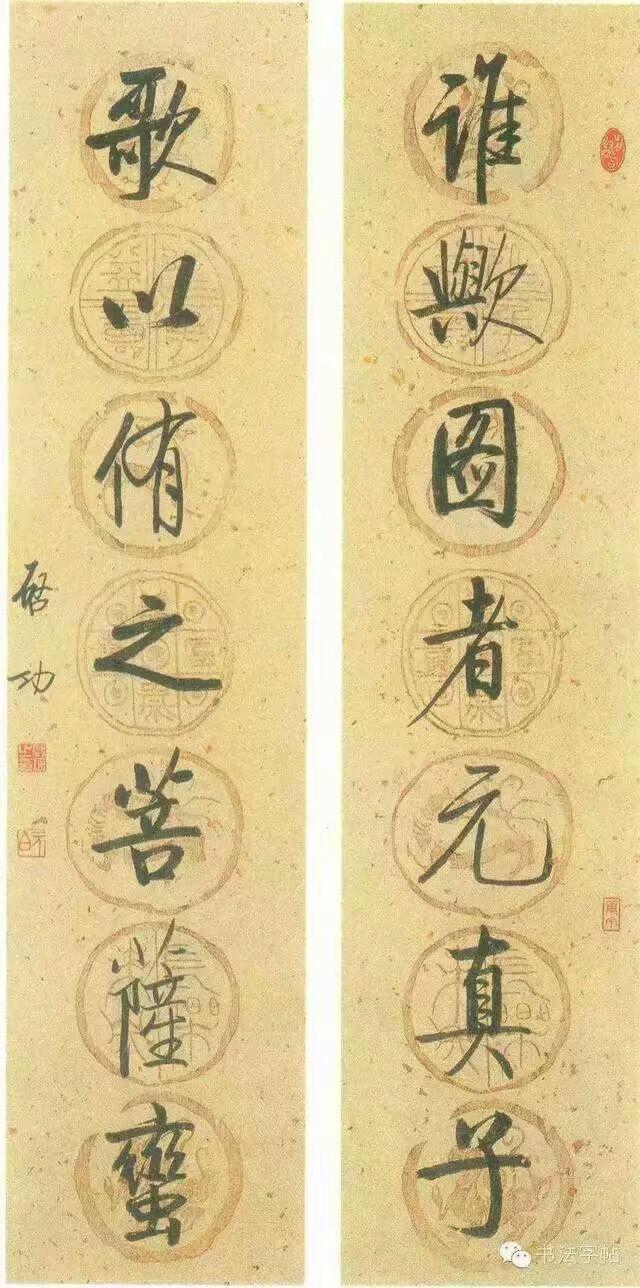 谁欤图者元真子
歌以侑之菩萨蛮
启功
书法字帖